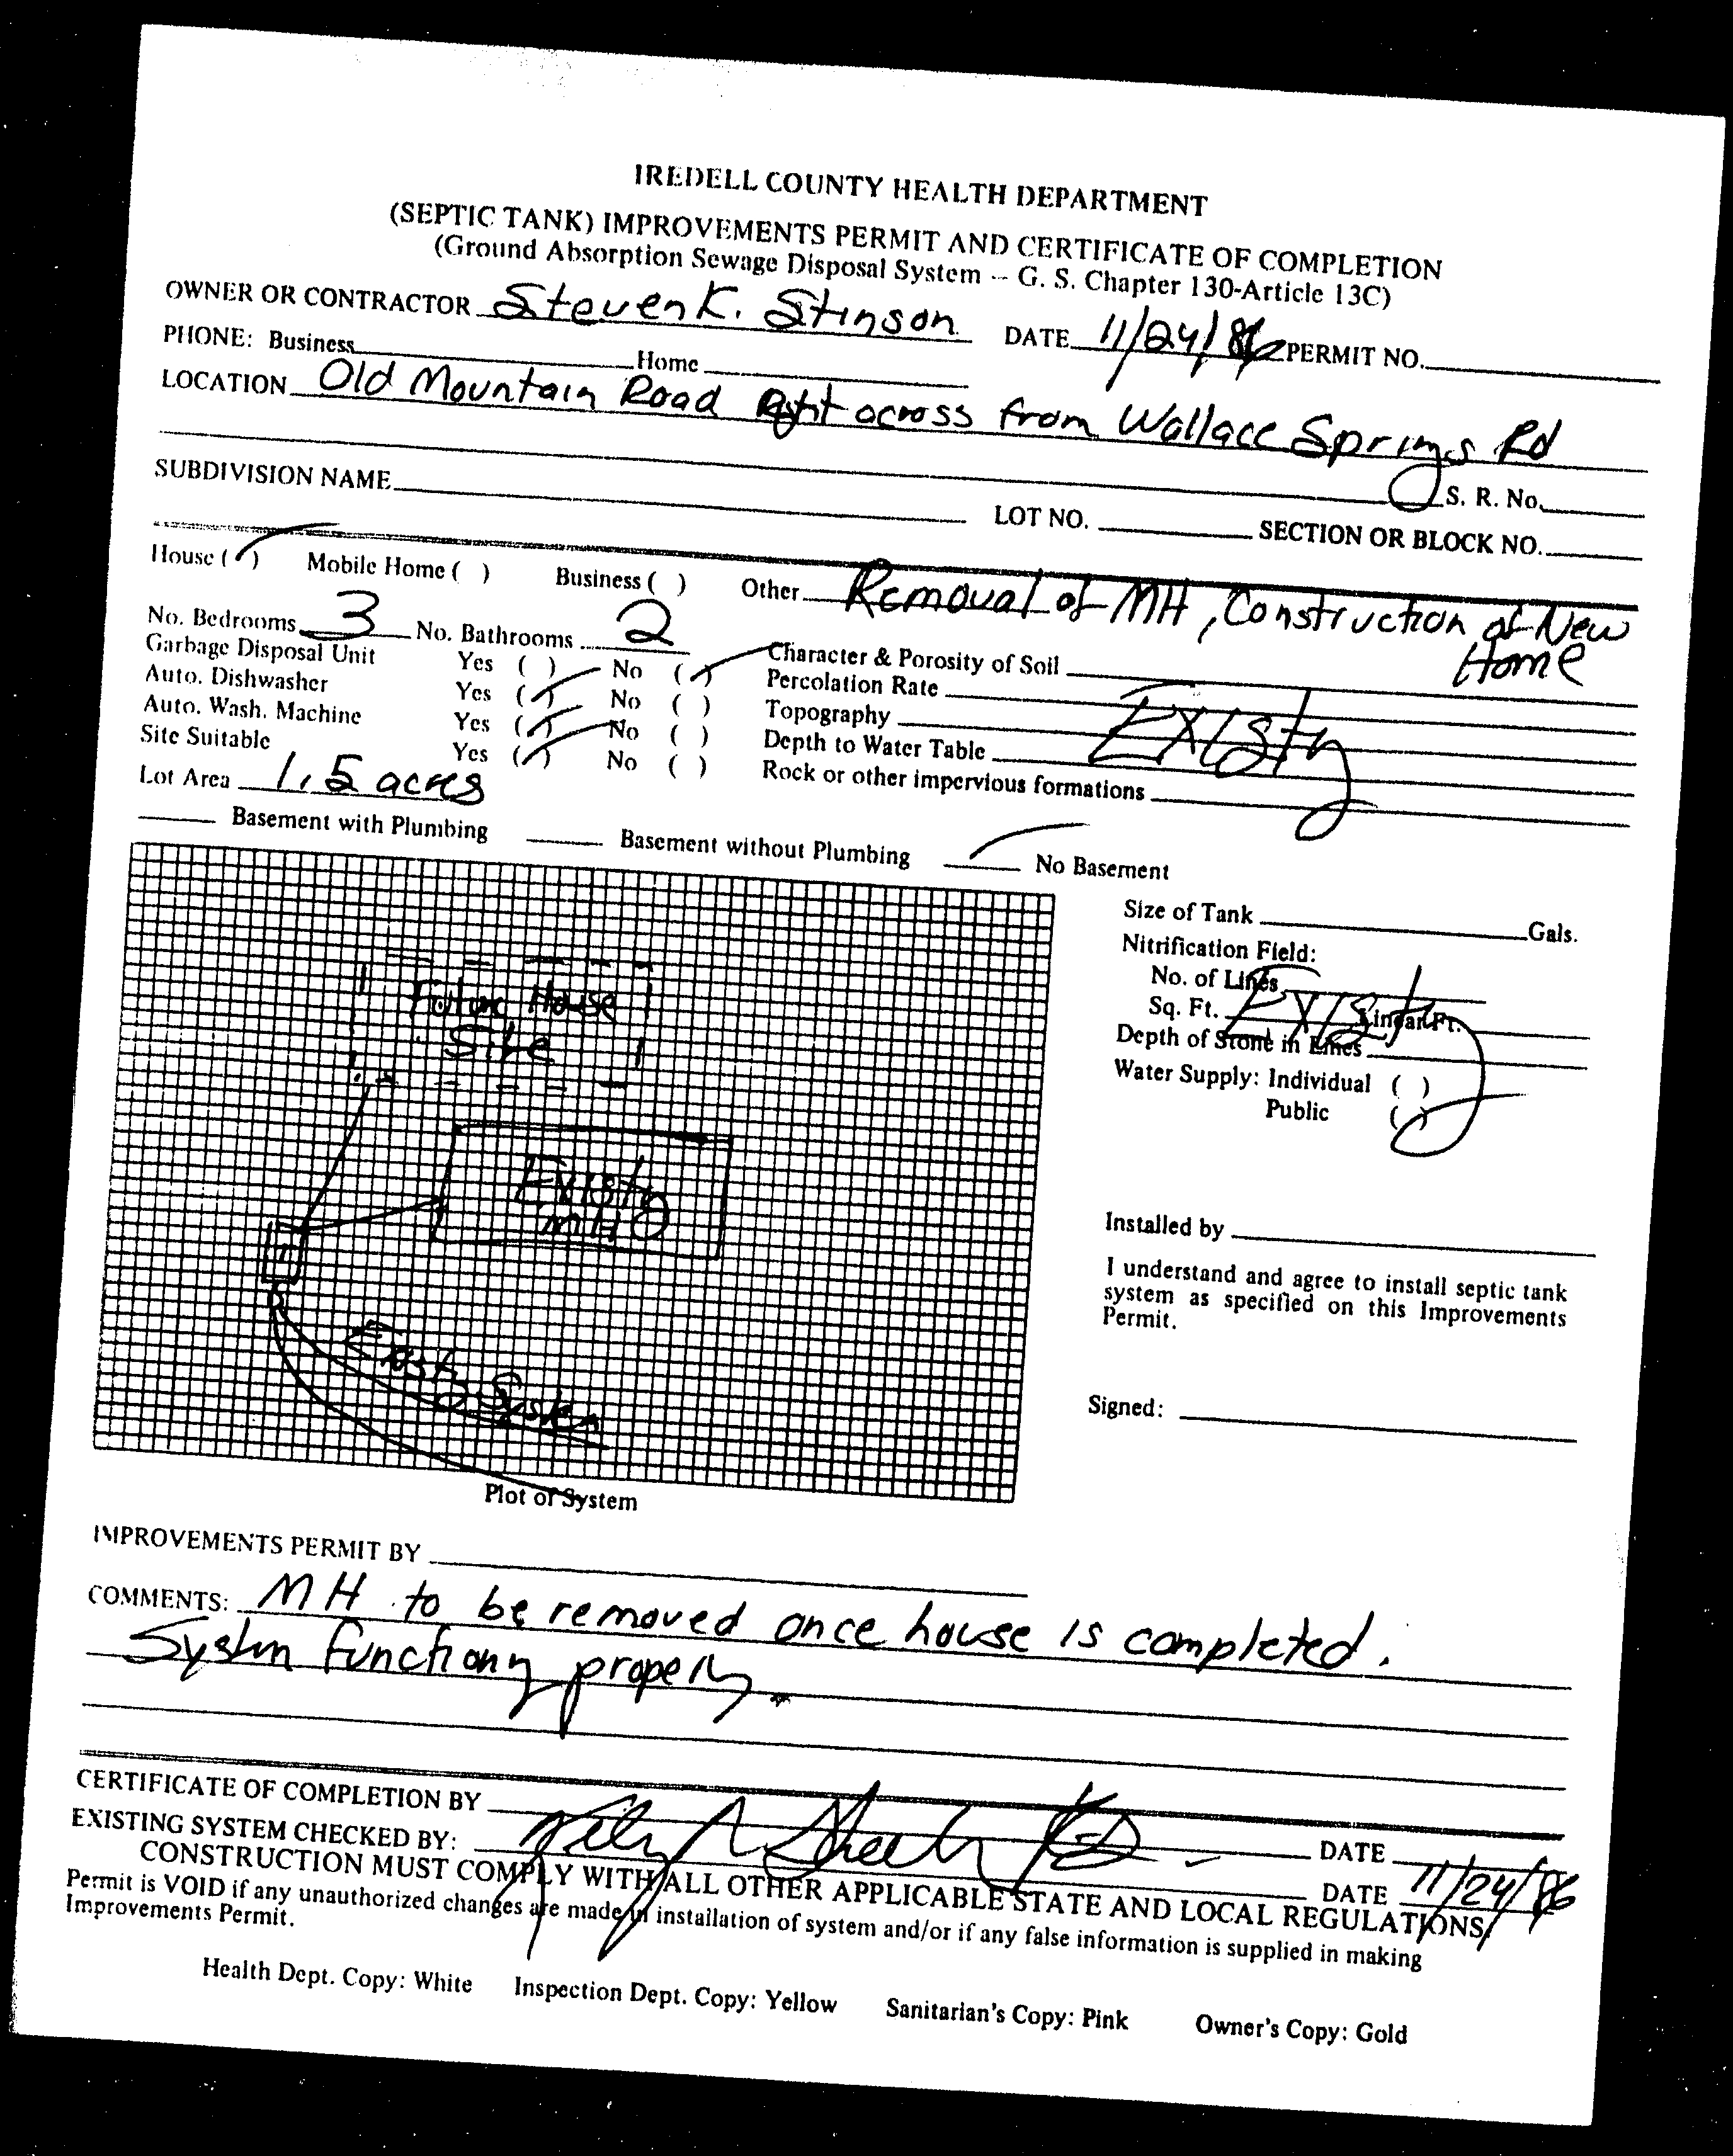 IREDELL COUNTY HEALTH DEPARTMENT
(SEPTIC TANK) IMPROVEMENTS PERMIT AND CERTIFICATE OF COMPLETION
(Ground Absorption Sewage Disposal System -- G. S. Chapter 130-Article 13C)
OWNER OR CONTRACTOR Steven K. Stinson DATE 11/24/86 PERMIT NO.
PHONE: Business Home
LOCATION Old Mountain Road Right across from Wallace Springs Rd
S. R. No.
SUBDIVISION NAME LOT NO. SECTION OR BLOCK NO.
House (✓) Mobile Home ( ) Business ( ) Other Removal of MH, Construction of New Home
No. Bedrooms 3 No. Bathrooms 2
Garbage Disposal Unit Yes ( ) No (✓) Character & Porosity of Soil
Auto. Dishwasher Yes (✓) No ( ) Percolation Rate
Auto. Wash. Machine Yes (✓) No ( ) Topography Existg
Site Suitable Yes (✓) No ( ) Depth to Water Table
Lot Area 1.5 acres Rock or other impervious formations
Basement with Plumbing Basement without Plumbing ✓ No Basement
Future House
Site
Existg
MH
Existg System
Plot of System
Size of Tank Gals.
Nitrification Field:
No. of Lines
Sq. Ft. Existg Linear Ft.
Depth of Stone in Lines
Water Supply: Individual ( )
Public (✓)
Installed by
I understand and agree to install septic tank
system as specified on this Improvements
Permit.
Signed:
IMPROVEMENTS PERMIT BY
COMMENTS: MH to be removed once house is completed.
System functiong properly.
CERTIFICATE OF COMPLETION BY DATE
EXISTING SYSTEM CHECKED BY: DATE 11/24/86
CONSTRUCTION MUST COMPLY WITH ALL OTHER APPLICABLE STATE AND LOCAL REGULATIONS
Permit is VOID if any unauthorized changes are made in installation of system and/or if any false information is supplied in making
Improvements Permit.
Health Dept. Copy: White Inspection Dept. Copy: Yellow Sanitarian's Copy: Pink Owner's Copy: Gold